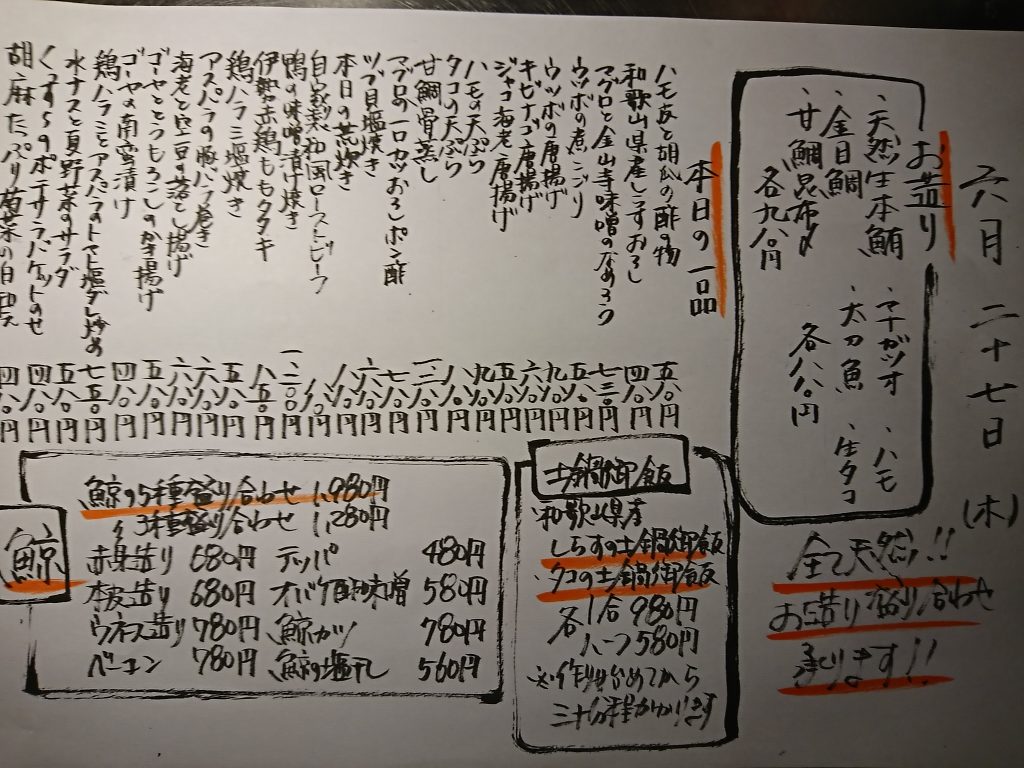 六月二十七日(木)
お造り
、天然生本鮪
、金目鯛
、甘鯛昆布〆
各九八〇円
、マナガツオ
、太刀魚
各八八〇円
、ハモ
、生タコ
全て天然!!
お造り盛り合わせ
承ります!!
本日の一品
ハモ皮と胡瓜の酢の物 五八〇円
和歌山県産しらすおろし 四八〇円
マグロと金山寺味噌のなめろう 七三〇円
ウツボの煮こごり 五八〇円
ウツボの唐揚げ 九八〇円
キビナゴ唐揚げ 六八〇円
ジャコ海老唐揚げ 五八〇円
ハモの天ぷら 九八〇円
タコの天ぷら 八八〇円
甘鯛骨蒸し
マグロの一口カツおろしポン酢 七八〇円
ツブ貝塩焼き 六八〇円
本日の荒炊き 八八〇円
自家製和風ローストビーフ
鴨の味噌漬け焼き
伊勢赤鶏ももタタキ 八五〇円
鶏ハラミ塩焼き 五八〇円
アスパラの豚バラ巻き 六八〇円
海老と空豆の落とし揚げ 六八〇円
ゴーヤととうもろこしのかき揚げ 五八〇円
ゴーヤの南蛮漬け 四八〇円
鶏ハラミとアスパラのトマト塩ダレ炒め 七五〇円
水ナスと夏野菜のサラダ 五八〇円
くずすらのポテサラバケットのせ 四八〇円
胡麻たっぷり 四八〇円
土鍋御飯
・和歌山県産
しらすの土鍋御飯
・タコの土鍋御飯
各1合 980円
ハーフ 580円
※作り始めてから
三十分程かかります
鯨
鯨の5種盛り合わせ 1,980円
〃 3種盛り合わせ 1,280円
赤身造り 680円
本皮造り 680円
ウネス造り 780円
ベーコン 780円
テッパ 480円
オバケ酢味噌 580円
鯨カツ 780円
鯨の塩干し 560円